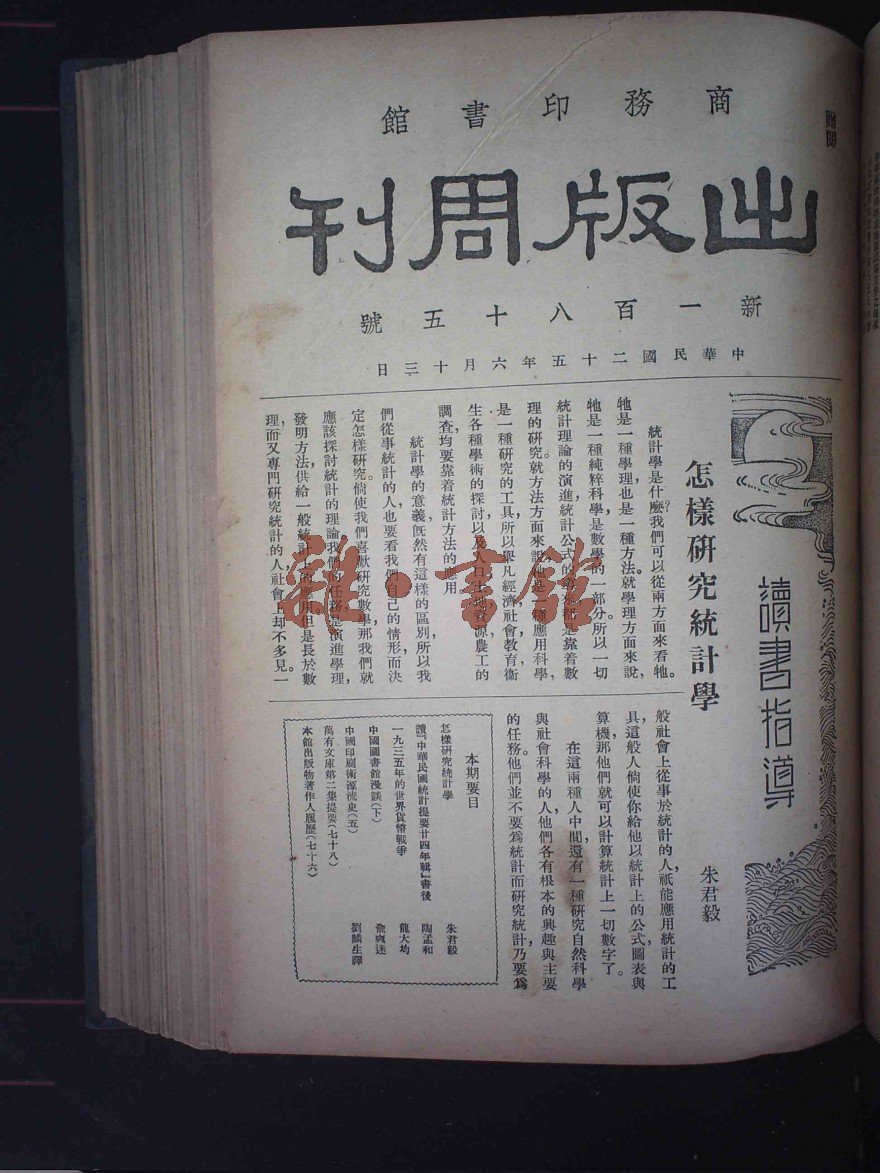 商務印書館
出版周刊
新一百八十五號
中華民國二十五年六月十三日
讀書指導
怎樣研究統計學
朱君毅
統計學是什麼?我們可以從兩方面來看牠。
牠是一種學理,也是一種方法。就學理方面來說,
牠是一種純粹科學,是數學的一部分。所以一切
統計理論的演進,統計公式的是靠着數
理的研究。就方法方面來說,牠是一種應用科學,
是一種研究的工具,所以舉凡經濟,社會,教育,衞
生各種學術的探討,以及人口,土地,資源,農工的
調查,均要靠着統計方法的應用。
統計學的意義,旣然有這樣的區別,所以我
們從事統計的人,也要看我們自己的情形而決
定怎樣研究。倘使我們喜歡研究數學,那我們就
應該探討統計的理論。我們的任務,是演進學理,
發明方法,供給一般統計上的應用。但是長於數
理,而又專門研究統計的人,社會上却不多見。一
般社會上從事於統計的人,祇能應用統計的工
具,這般人倘使你給他以統計上的公式圖表與
算機,那他們就可以計算統計上一切數字了。
在這兩種人中間,還有一種研究自然科學
與社會科學的人,他們各有根本的興趣與主要
的任務。他們並不要爲統計而研究統計,乃要爲
本期要目
怎樣研究統計學 朱君毅
讀「中華民國統計提要廿四年輯」書後 陶孟和
一九三五年的世界貨幣戰爭 龍大均
中國圖書館漫談(下) 俞爽迷
中國印刷術源流史(五) 劉麟生譯
萬有文庫第二集提要(七十八)
本館出版物著作人履歷(七十六)
雜·書館